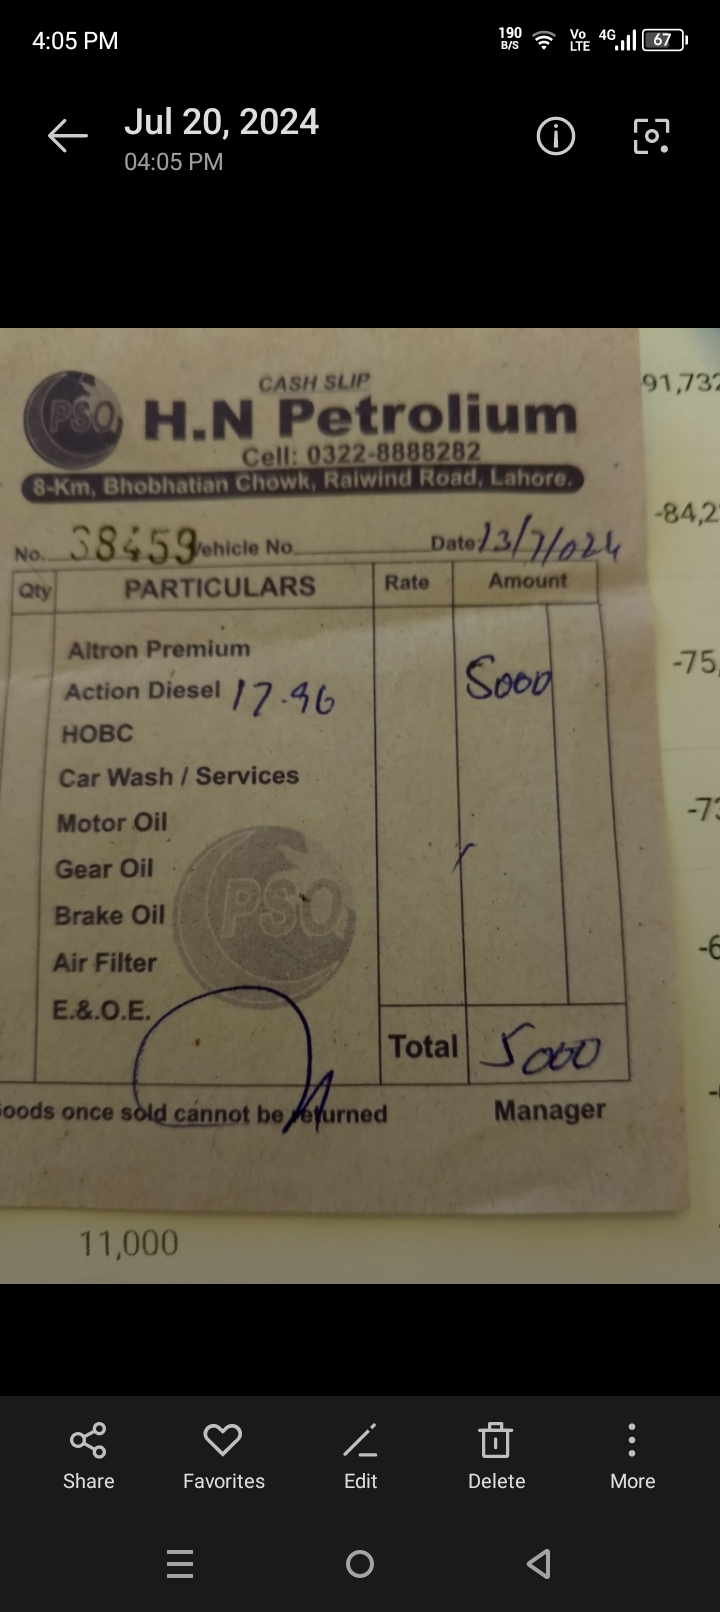 4:05 PM 190 B/S Vo LTE 4G 67
Jul 20, 2024
04:05 PM
CASH SLIP
PSO H.N Petrolium
Cell: 0322-8888282
8-Km, Bhobhatian Chowk, Raiwind Road, Lahore.
No. 38459 Vehicle No. Date: 13/7/024
Qty PARTICULARS Rate Amount
Altron Premium
Action Diesel 17.96 5000
HOBC
Car Wash / Services
Motor Oil
Gear Oil
Brake Oil
PSO
Air Filter
E.&.O.E.
Total 5000
oods once sold cannot be returned Manager
91,732
-84,2
-75,
-73
-6
11,000
Share Favorites Edit Delete More